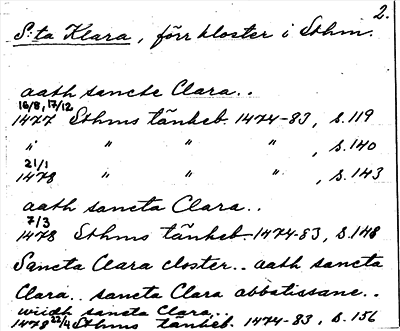 2.
S:ta Klara, förr kloster i Sthm.
aath sancte Clara..
16/8, 17/12
1477 Sthms tänkeb. 1474-83, s. 119
" " " " , s. 140
21/1
1478 " " " , s. 143
aath sancta Clara..
7/3
1478 Sthms tänkeb. 1474-83, s. 148
Sancta Clara closter.. aath sancta
Clara.. sancta Clara abbatissane..
wiidh sancta Clara..
1478 22/4 Sthms tänkeb. 1474-83, s. 156